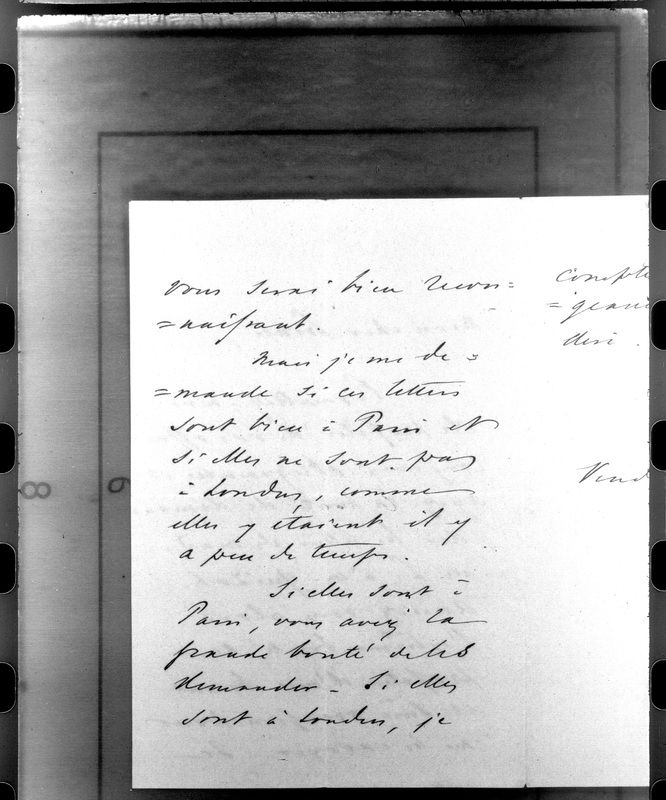 vous serai bien recon=
=naissant.
Mais je me de=
=mande si ces lettres
sont bien à Paris et
si elles ne sont pas
à Londres, comme
elles y étaient il y
a peu de temps.
Si elles sont à
Paris, vous aurez la
grande bonté de les
demander - Si elles
sont à Londres, je
compte
=
desi
Vend
8
6